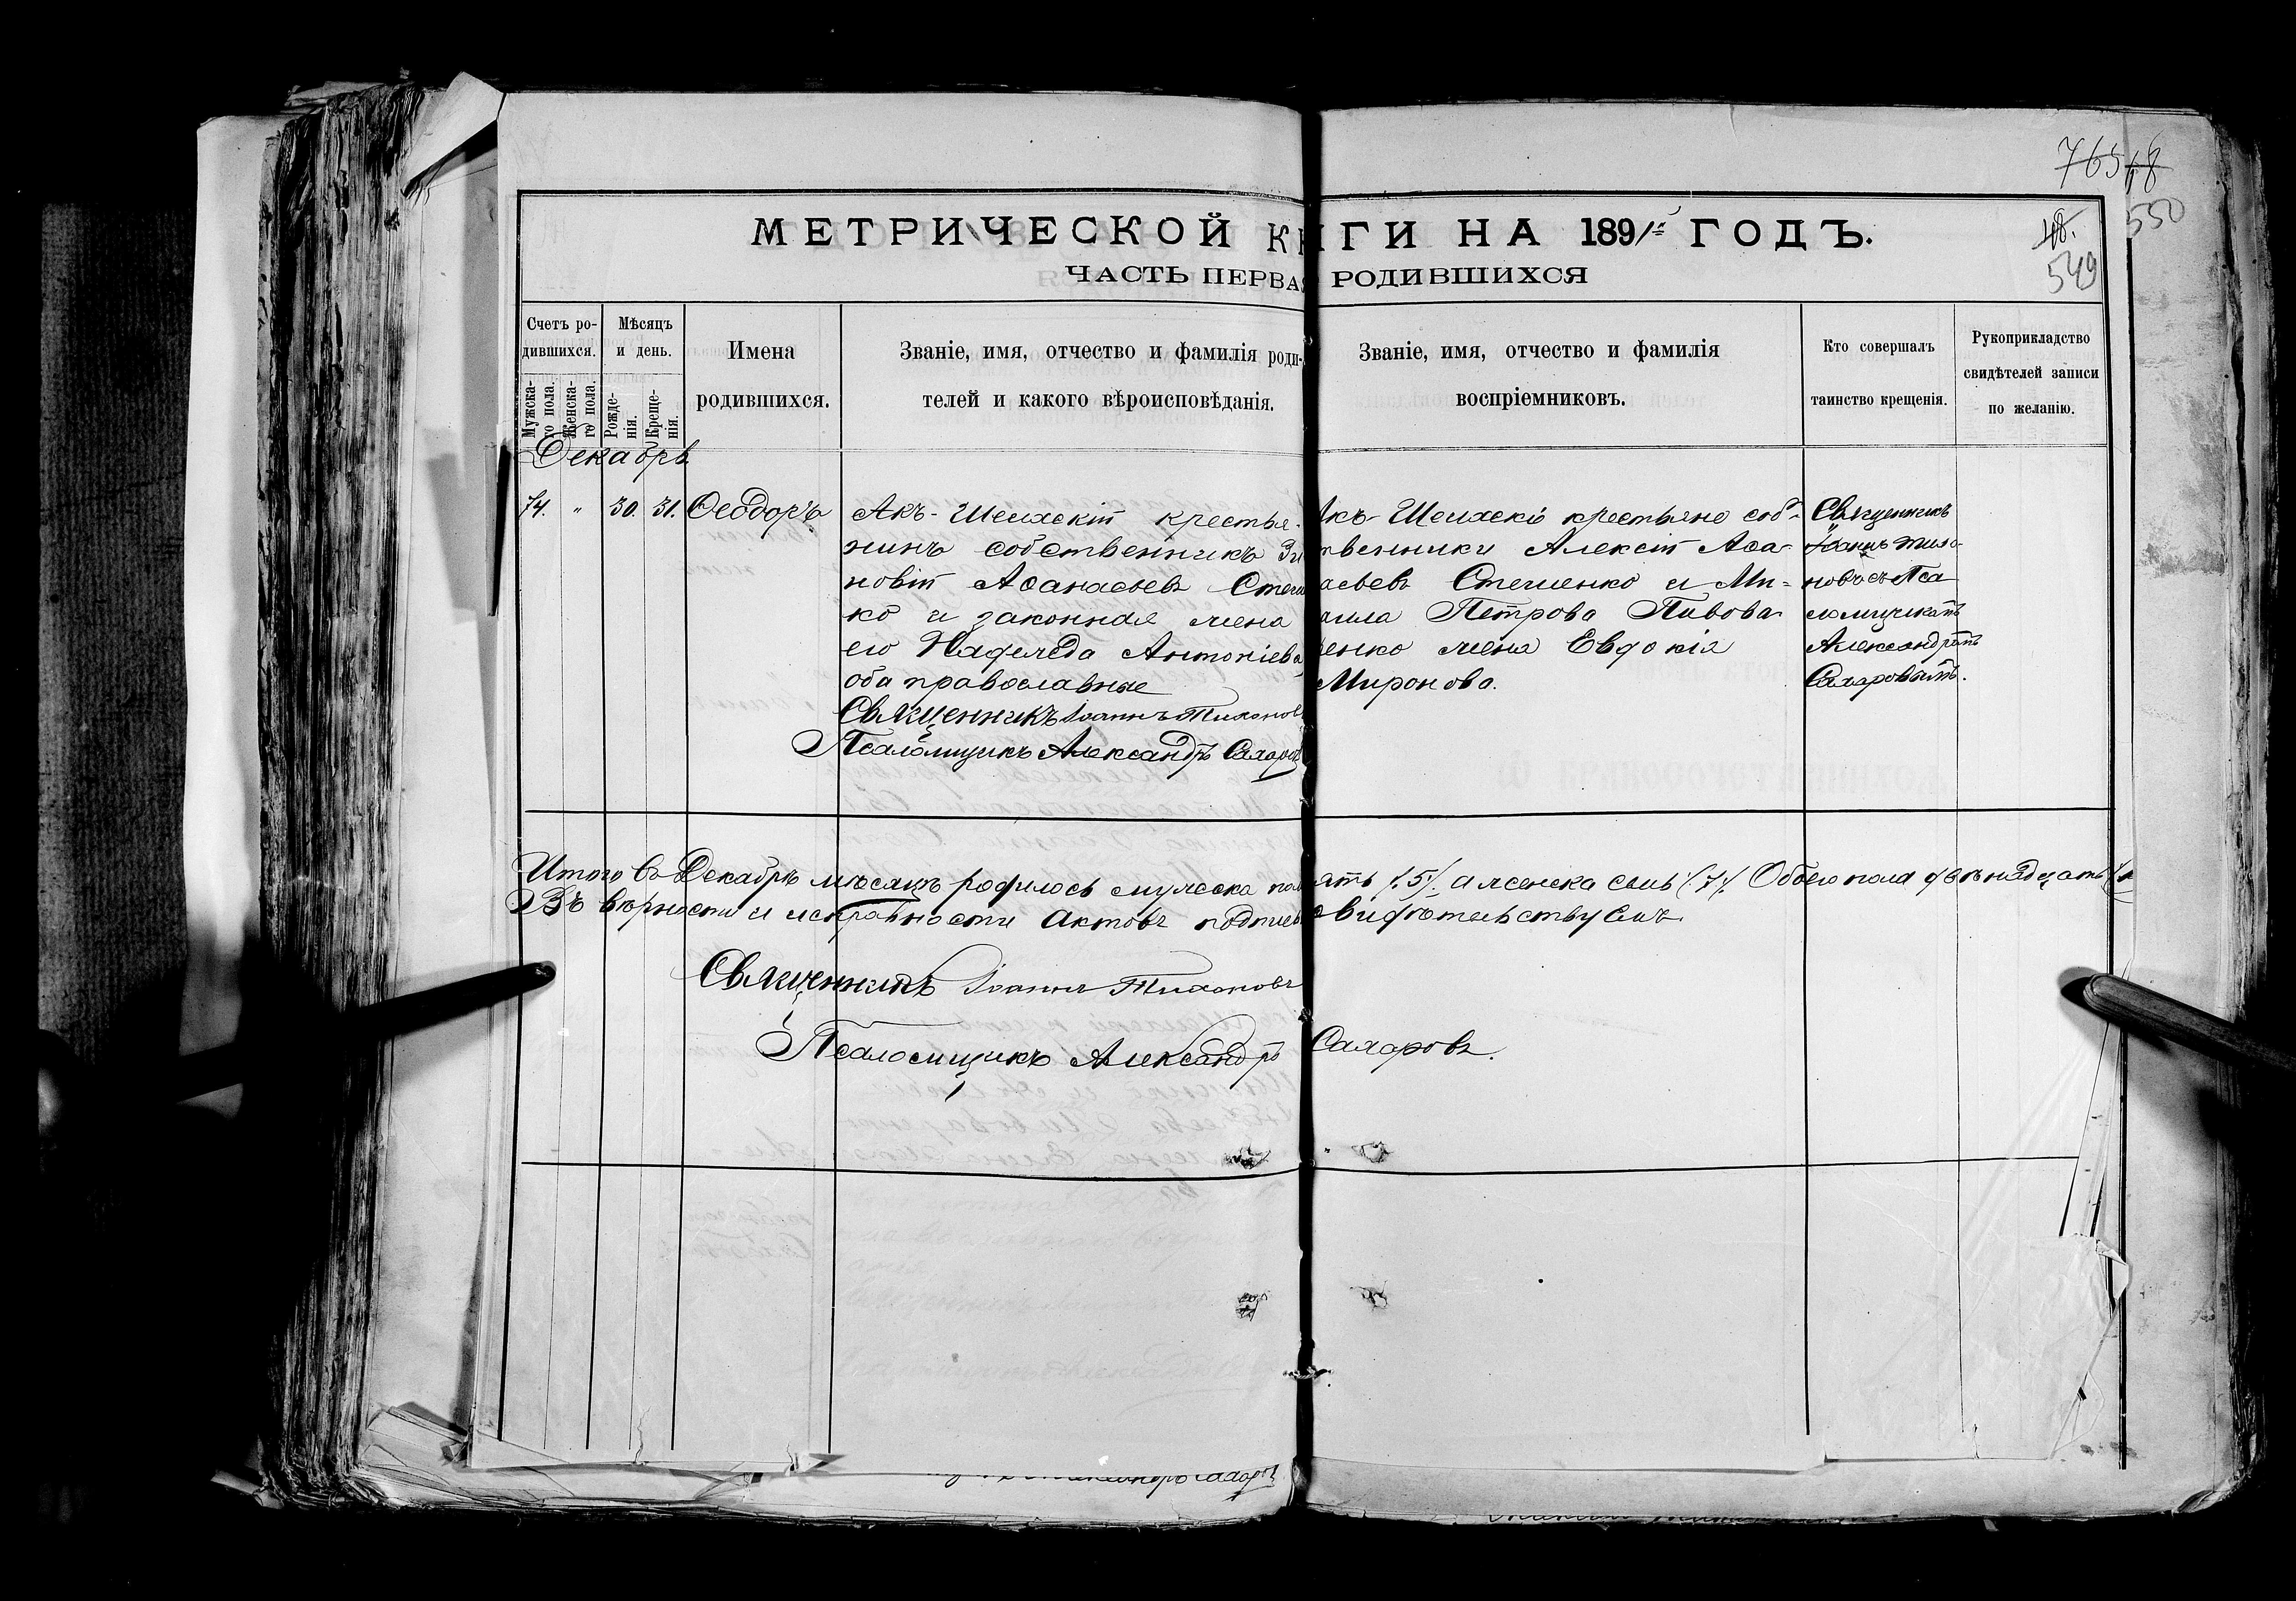 76518
550
МЕТРИЧЕСКОЙ КНИГИ НА 1891й ГОДЪ.
18.
549
ЧАСТЬ ПЕРВАЯ РОДИВШИХСЯ
Счетъ ро-
дившихся.
Мужска-
го пола.
Женска-
го пола.
Мѣсяцъ
и день.
Рожде-
нія.
Креще-
нія.
Имена
родившихся.
Званіе, имя, отчество и фамилія роди-
телей и какого вѣроисповѣданія.
Званіе, имя, отчество и фамилія
воспріемниковъ.
Кто совершалъ
таинство крещенія.
Рукоприкладство
свидѣтелей записи
по желанію.
Декабрь
74. " 30. 31. Ѳеодоръ
Акъ-Шеихскій крестья-
нинъ собственникъ Зи
новій Аѳанасьевъ Стец
ко и законная жена
его Надежда Антоніева
оба православные
Священникъ Іоаннъ Тихоновъ
Псаломщикъ Александръ Сахаровъ
Акъ-Шеихскіе крестьяне соб-
твенники Алексій Аѳа-
асьевъ Стеценко и Ми-
аила Петрова Пивова-
енко жена Евдокія
Миронова.
Священникъ
Іоаннъ Тихо-
новъ съ Пса
ломщикомъ
Александромъ
Сахаровымъ.
Итого въ Декабрѣ мѣсяцѣ родилось мужеска пол ять /.5/. а женска семь /.7/. Обоего пола двѣнадцать
Въ вѣрности и исправности актовъ подписью свидѣтельствуемъ.
Священникъ Іоаннъ Тихоновъ
Псаломщикъ Александръ Сахаровъ.